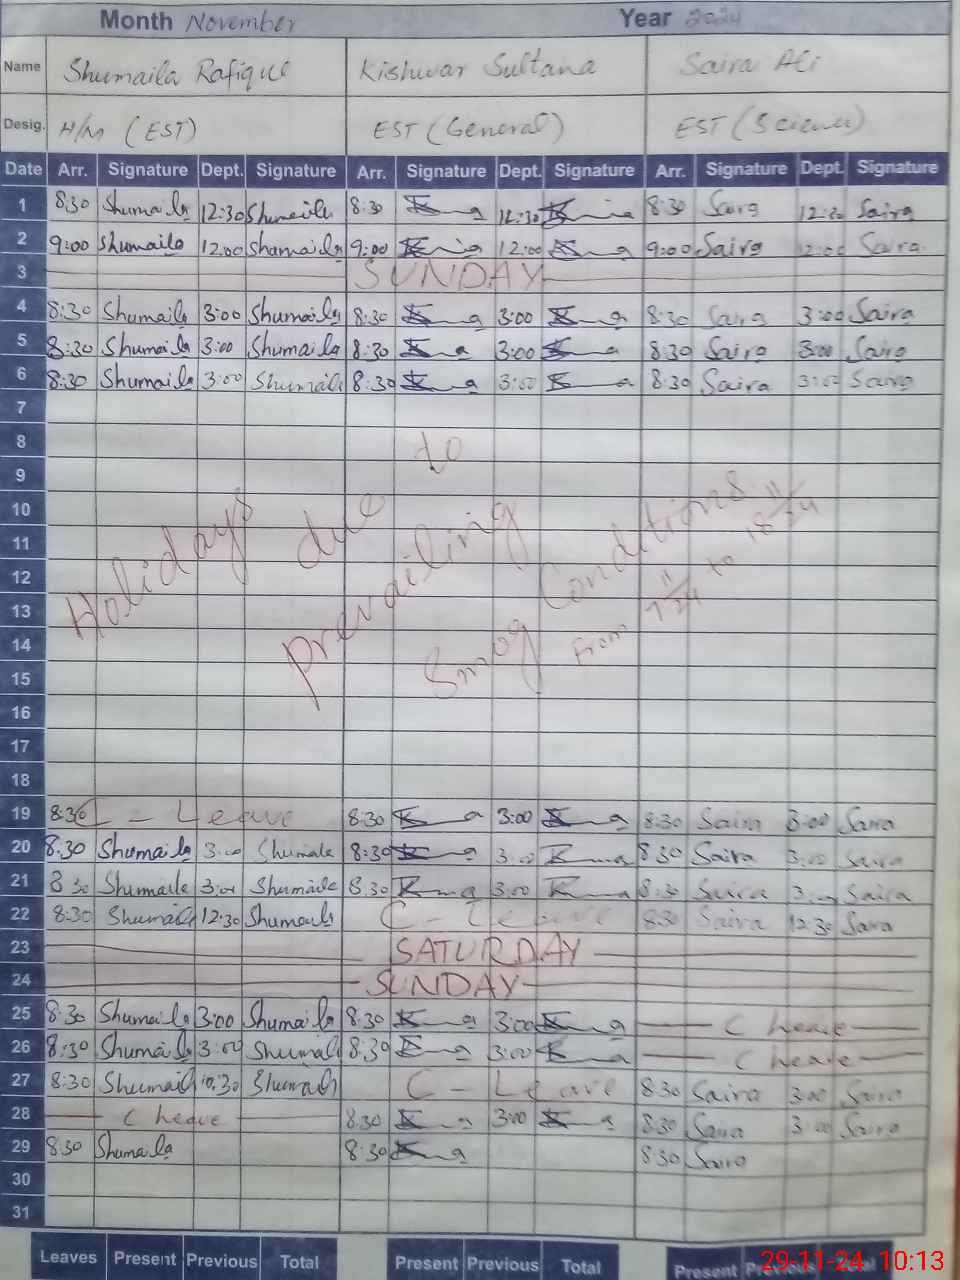 Month November Year 2024
Name Shumaila Rafique Kishwar Sultana Saira Ali
Desig. H/M (EST) EST (General) EST (Science)
Date Arr. Signature Dept. Signature Arr. Signature Dept. Signature Arr. Signature Dept. Signature
1 8:30 Shumaila 12:30 Shumaila 8:30 12:30 8:30 Saira 12:30 Saira
2 9:00 Shumaila 12:00 Shumaila 9:00 12:00 9:00 Saira 12:00 Saira
3 SUNDAY
4 8:30 Shumaila 3:00 Shumaila 8:30 3:00 8:30 Saira 3:00 Saira
5 8:30 Shumaila 3:00 Shumaila 8:30 3:00 8:30 Saira 3:00 Saira
6 8:30 Shumaila 3:00 Shumaila 8:30 3:00 8:30 Saira 3:00 Saira
7
8
9
10
11
12
13
14
15
16
17
18
Holidays due to
prevailing
Smog Conditions
From 7 11/24 to 18 11/24
19 8:30 C - Leave 8:30 3:00 8:30 Saira 3:00 Saira
20 8:30 Shumaila 3:00 Shumaila 8:30 3:00 8:30 Saira 3:00 Saira
21 8:30 Shumaila 3:00 Shumaila 8:30 3:00 8:30 Saira 3:00 Saira
22 8:30 Shumaila 12:30 Shumaila C - Leave 8:30 Saira 12:30 Saira
23 SATURDAY
24 SUNDAY
25 8:30 Shumaila 3:00 Shumaila 8:30 3:00 C Leave
26 8:30 Shumaila 3:00 Shumaila 8:30 3:00 C Leave
27 8:30 Shumaila 10:30 Shumaila C - Leave 8:30 Saira 3:00 Saira
28 C Leave 8:30 3:00 8:30 Saira 3:00 Saira
29 8:30 Shumaila 8:30 8:30 Saira
30
31
Leaves Present Previous Total Present Previous Total Present Previous Total
29-11-24 10:13